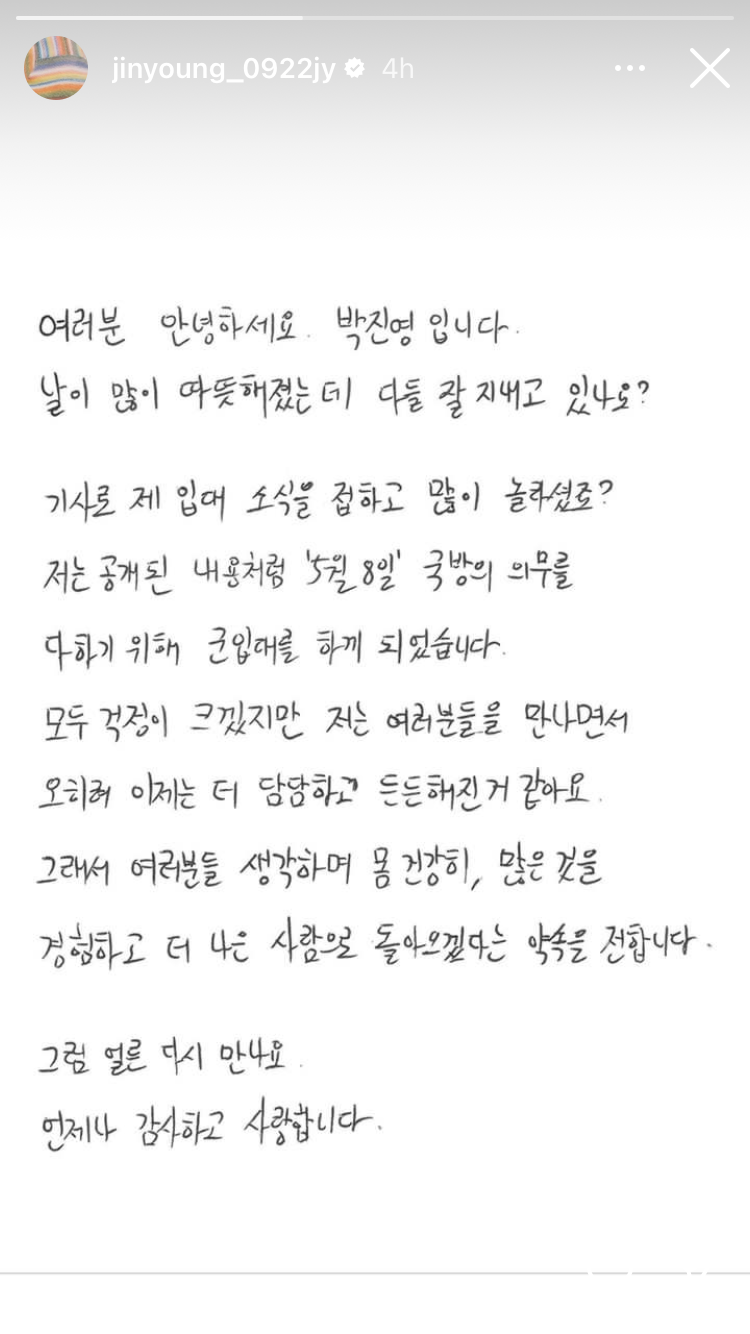 jinyoung_0922jy 4h
여러분 안녕하세요. 박진영입니다.
날이 많이 따뜻해졌는데 다들 잘 지내고 있나요?
기사로 제 입대 소식을 접하고 많이 놀라셨죠?
저는 공개된 내용처럼 '5월 8일' 국방의 의무를
다하기 위해 군입대를 하게 되었습니다.
모두 걱정이 크겠지만 저는 여러분들을 만나면서
오히려 이제는 더 담담하고 든든해진 거 같아요.
그래서 여러분들 생각하며 몸 건강히, 많은 것을
경험하고 더 나은 사람으로 돌아오겠다는 약속을 전합니다.
그럼 얼른 다시 만나요.
언제나 감사하고 사랑합니다.